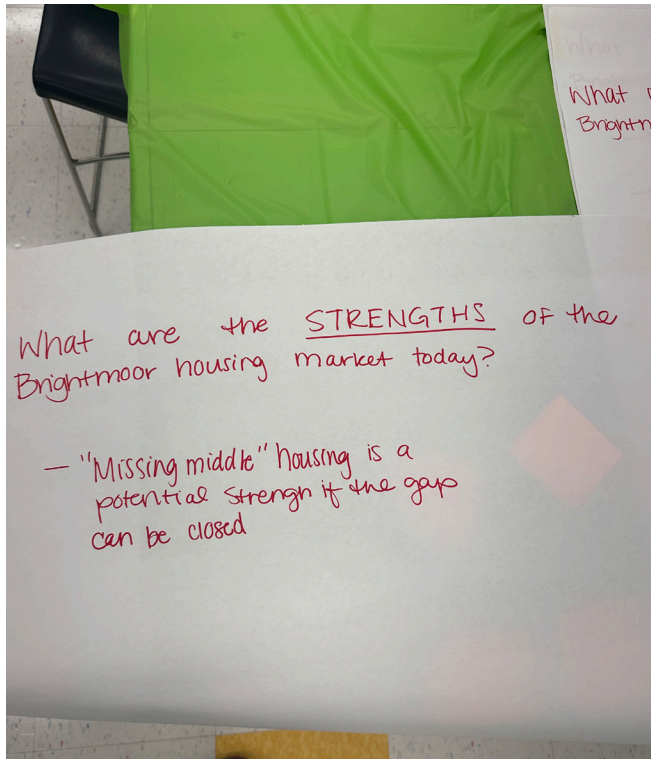 What
What
Brightm
What are the STRENGTHS of the
Brightmoor housing market today?
- "Missing middle" housing is a
potential Strengh if the gap
can be closed